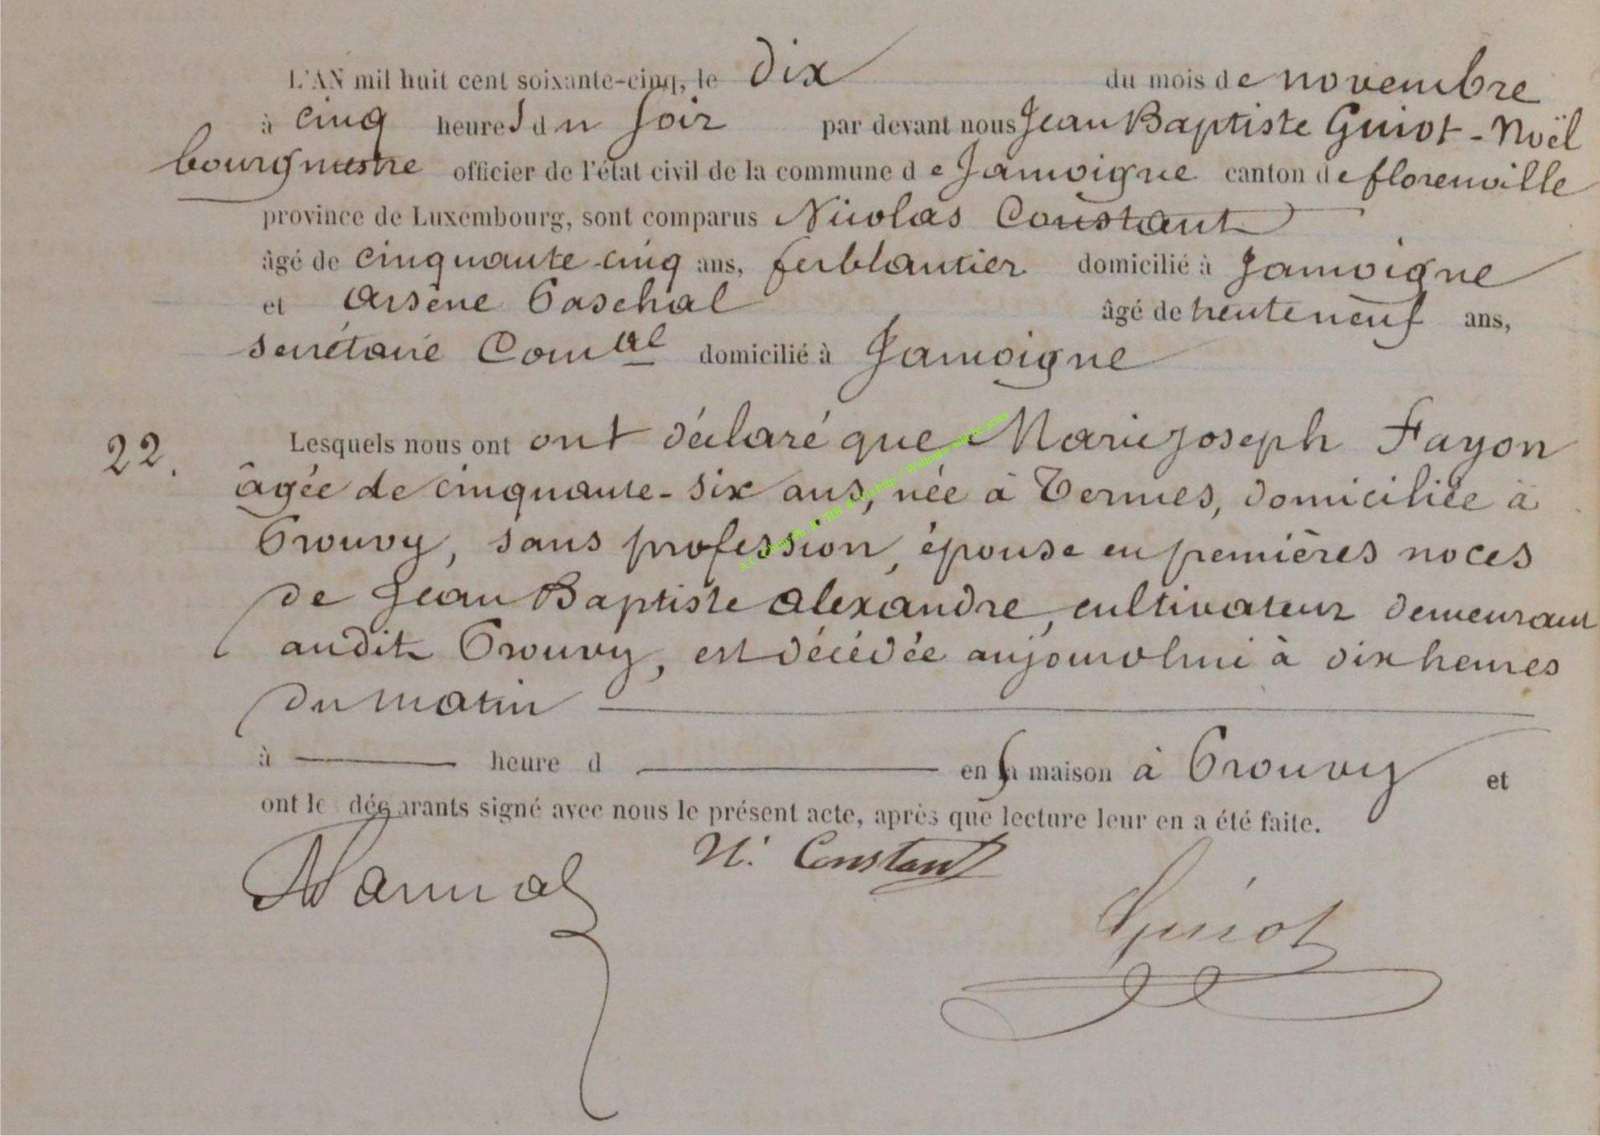 L'AN mil huit cent soixante-cinq, le dix du mois de novembre
à cinq heures du soir par devant nous Jean Baptiste Guiot-Noël
bourgmestre officier de l'état civil de la commune de Jamoigne canton de florenville
province de Luxembourg, sont comparus Nicolas Constant
âgé de cinquante-cinq ans, ferblantier domicilié à Jamoigne
et Arsène Paschal âgé de trente neuf ans,
secrétaire Comal domicilié à Jamoigne
22. Lesquels nous ont ont déclaré que Marie joseph Fayon
âgée de cinquante-six ans, née à Termes, domiciliée à
Prouvy, sans profession, épouse en premières noces
de Jean Baptiste alexandre, cultivateur demeurant
audit Prouvy, est décédée aujourd'hui à dix heures
du matin
à heure d en sa maison à Prouvy et
ont les déclarants signé avec nous le présent acte, après que lecture leur en a été faite.
N. Constant
Guiot